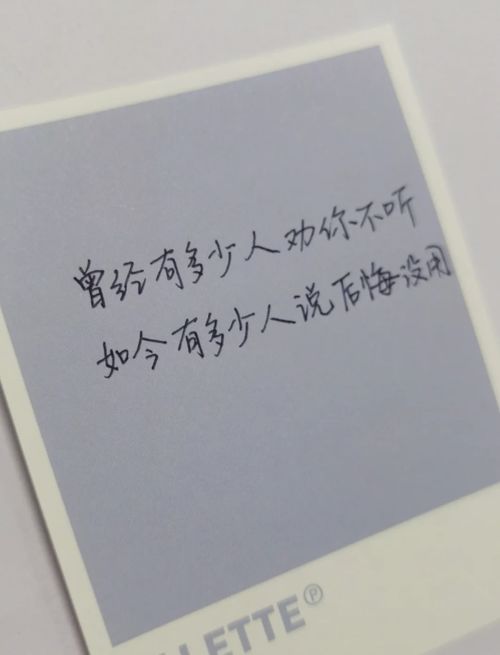 曾经有多少人劝你不听
如今有多少人说后悔没用
LETTE℗